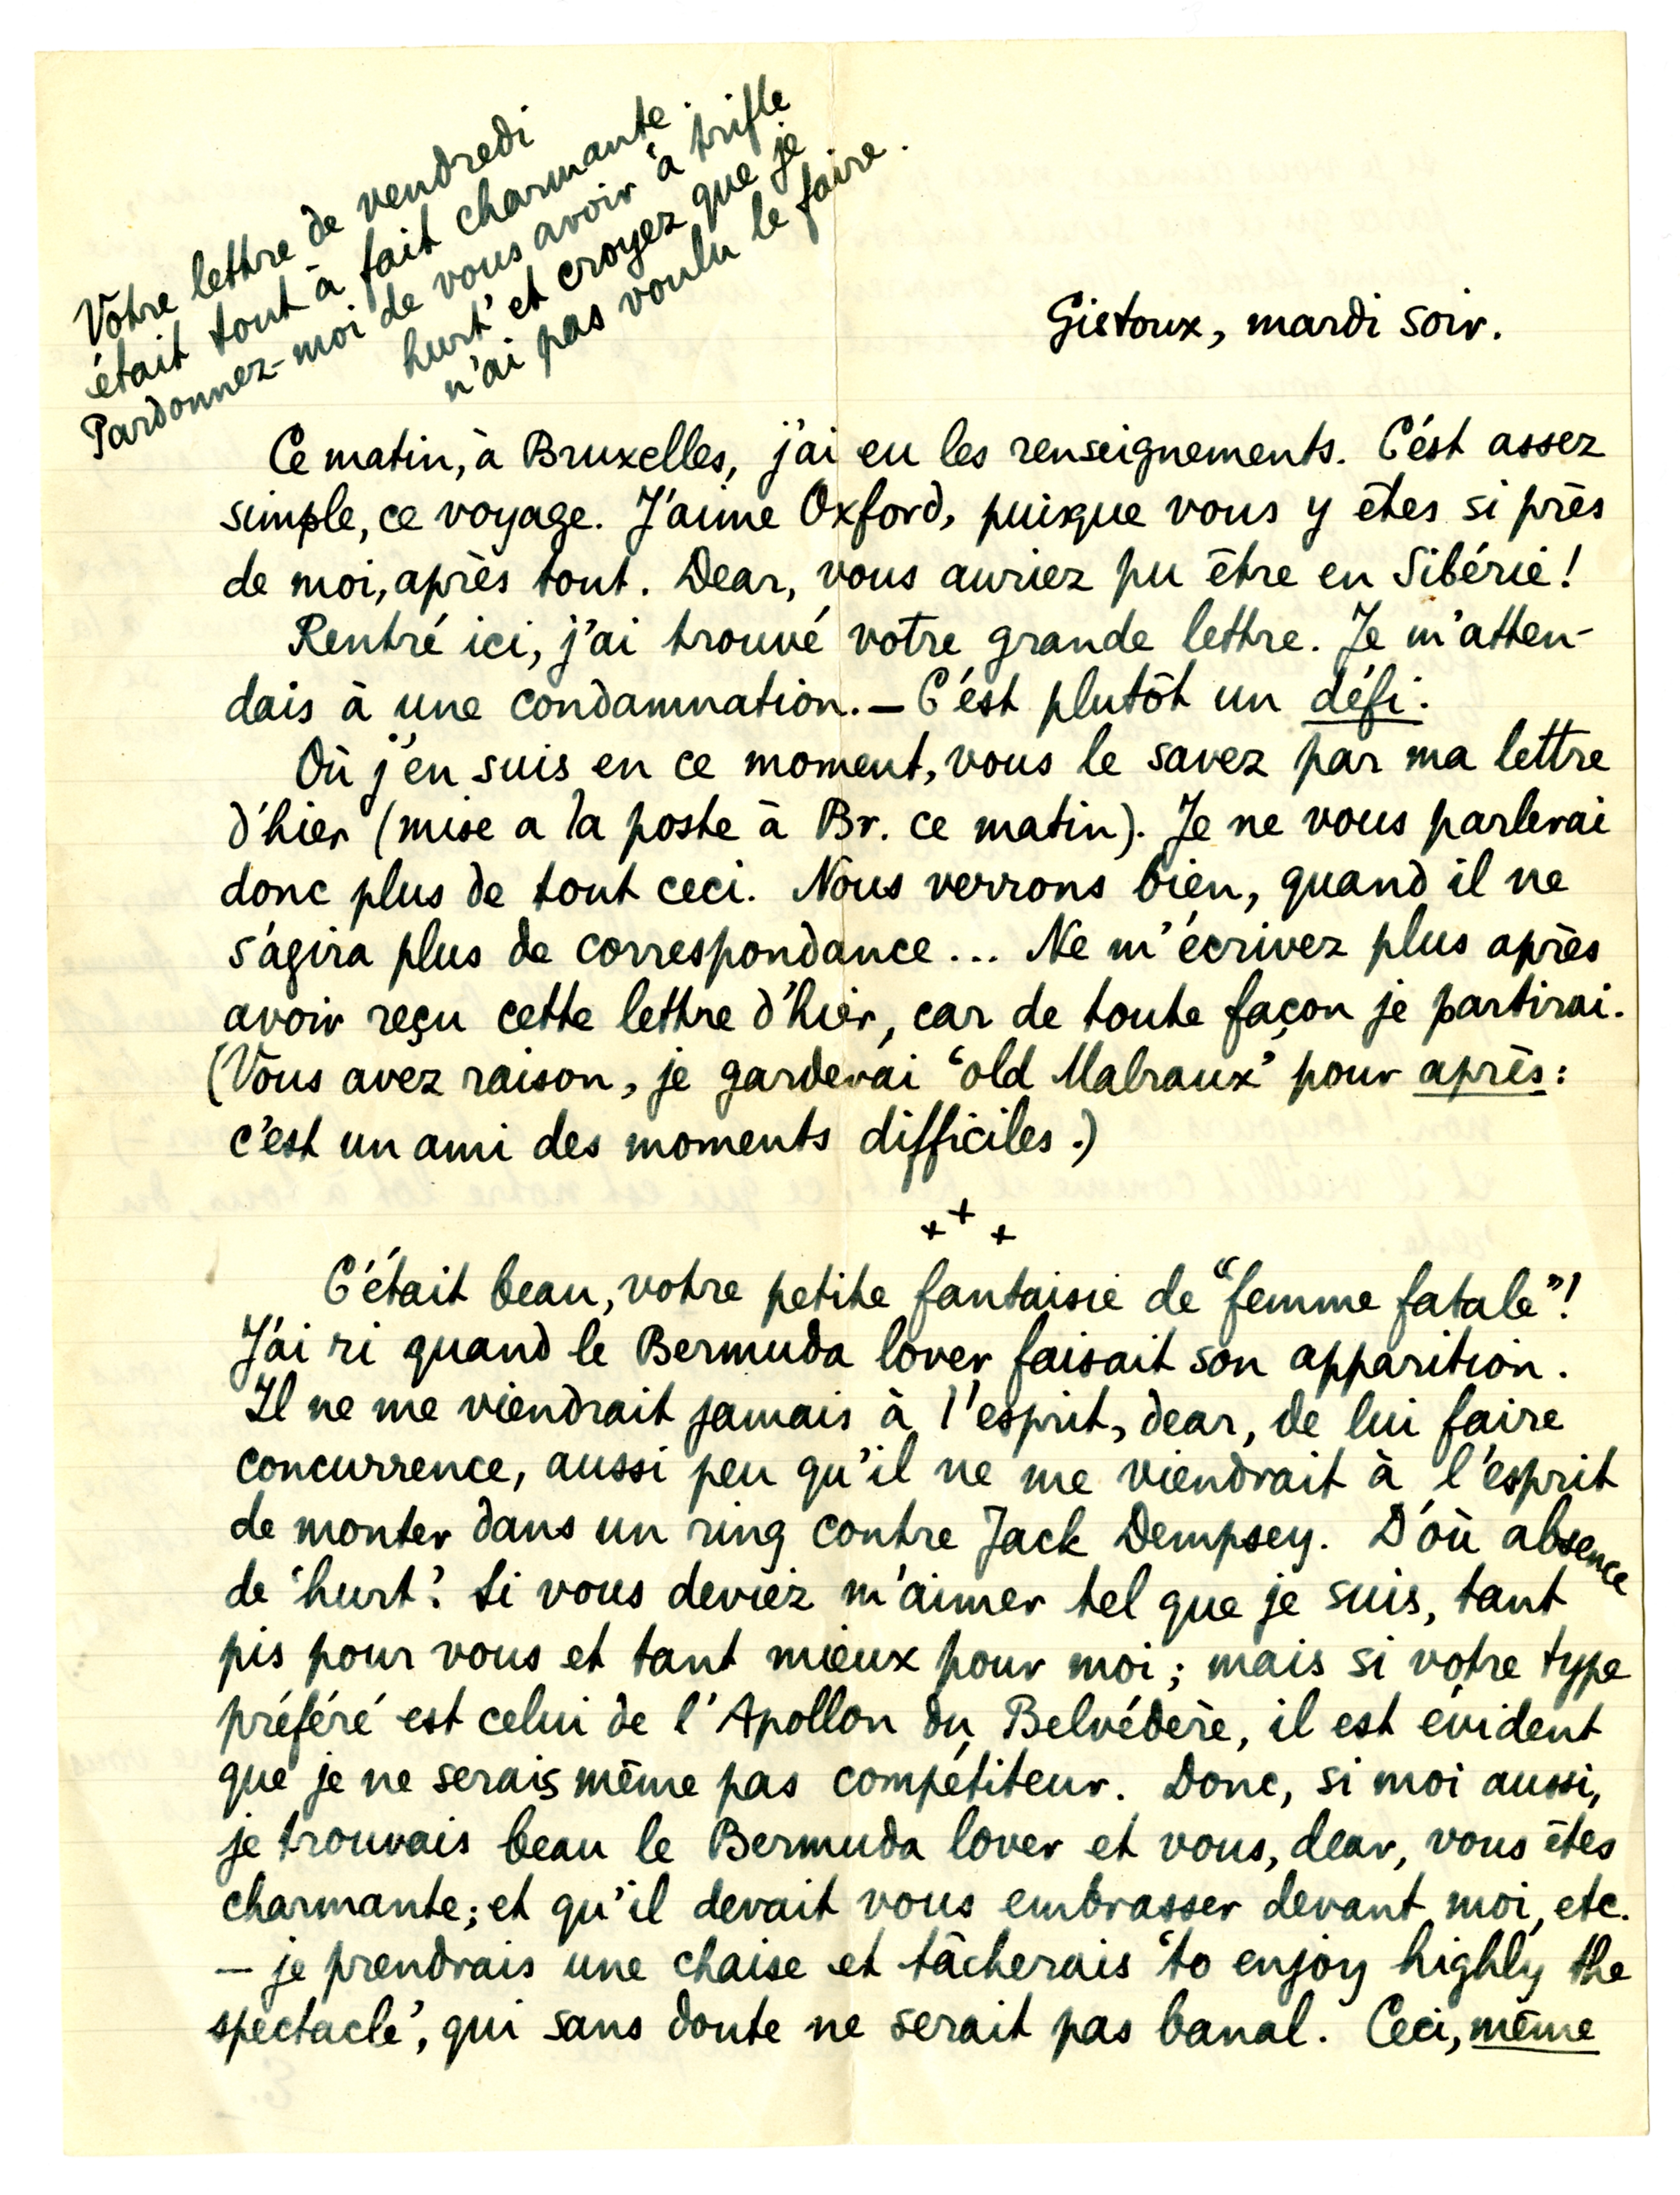 Votre lettre de vendredi
était tout à fait charmante.
Pardonnez-moi de vous avoir 'a trifle
hurt' et croyez que je
n'ai pas voulu le faire.
Gistoux, mardi soir.
Ce matin, à Bruxelles, j'ai eu les renseignements. C'est assez
simple, ce voyage. J'aime Oxford, puisque vous y êtes si près
de moi, après tout. Dear, vous auriez pu être en Sibérie!
Rentré ici, j'ai trouvé votre grande lettre. Je m'atten-
dais à une condamnation. — C'est plutôt un défi.
Où j'en suis en ce moment, vous le savez par ma lettre
d'hier (mise a la poste à Br. ce matin). Je ne vous parlerai
donc plus de tout ceci. Nous verrons bien, quand il ne
s'agira plus de correspondance... Ne m'écrivez plus après
avoir reçu cette lettre d'hier, car de toute façon je partirai.
(Vous avez raison, je garderai 'old Malraux' pour après:
c'est un ami des moments difficiles.)
+ + +
C'était beau, votre petite fantaisie de "femme fatale"!
J'ai ri quand le Bermuda lover faisait son apparition.
Il ne me viendrait jamais à l'esprit, dear, de lui faire
concurrence, aussi peu qu'il ne me viendrait à l'esprit
de monter dans un ring contre Jack Dempsey. D'où absence
de 'hurt'. Si vous deviez m'aimer tel que je suis, tant
pis pour vous et tant mieux pour moi; mais si votre type
préféré est celui de l'Apollon du Belvédère, il est évident
que je ne serais même pas compétiteur. Donc, si moi aussi,
je trouvais beau le Bermuda lover et vous, dear, vous êtes
charmante; et qu'il devait vous embrasser devant moi, etc.
— je prendrais une chaise et tâcherais 'to enjoy highly the
spectacle', qui sans doute ne serait pas banal. Ceci, même